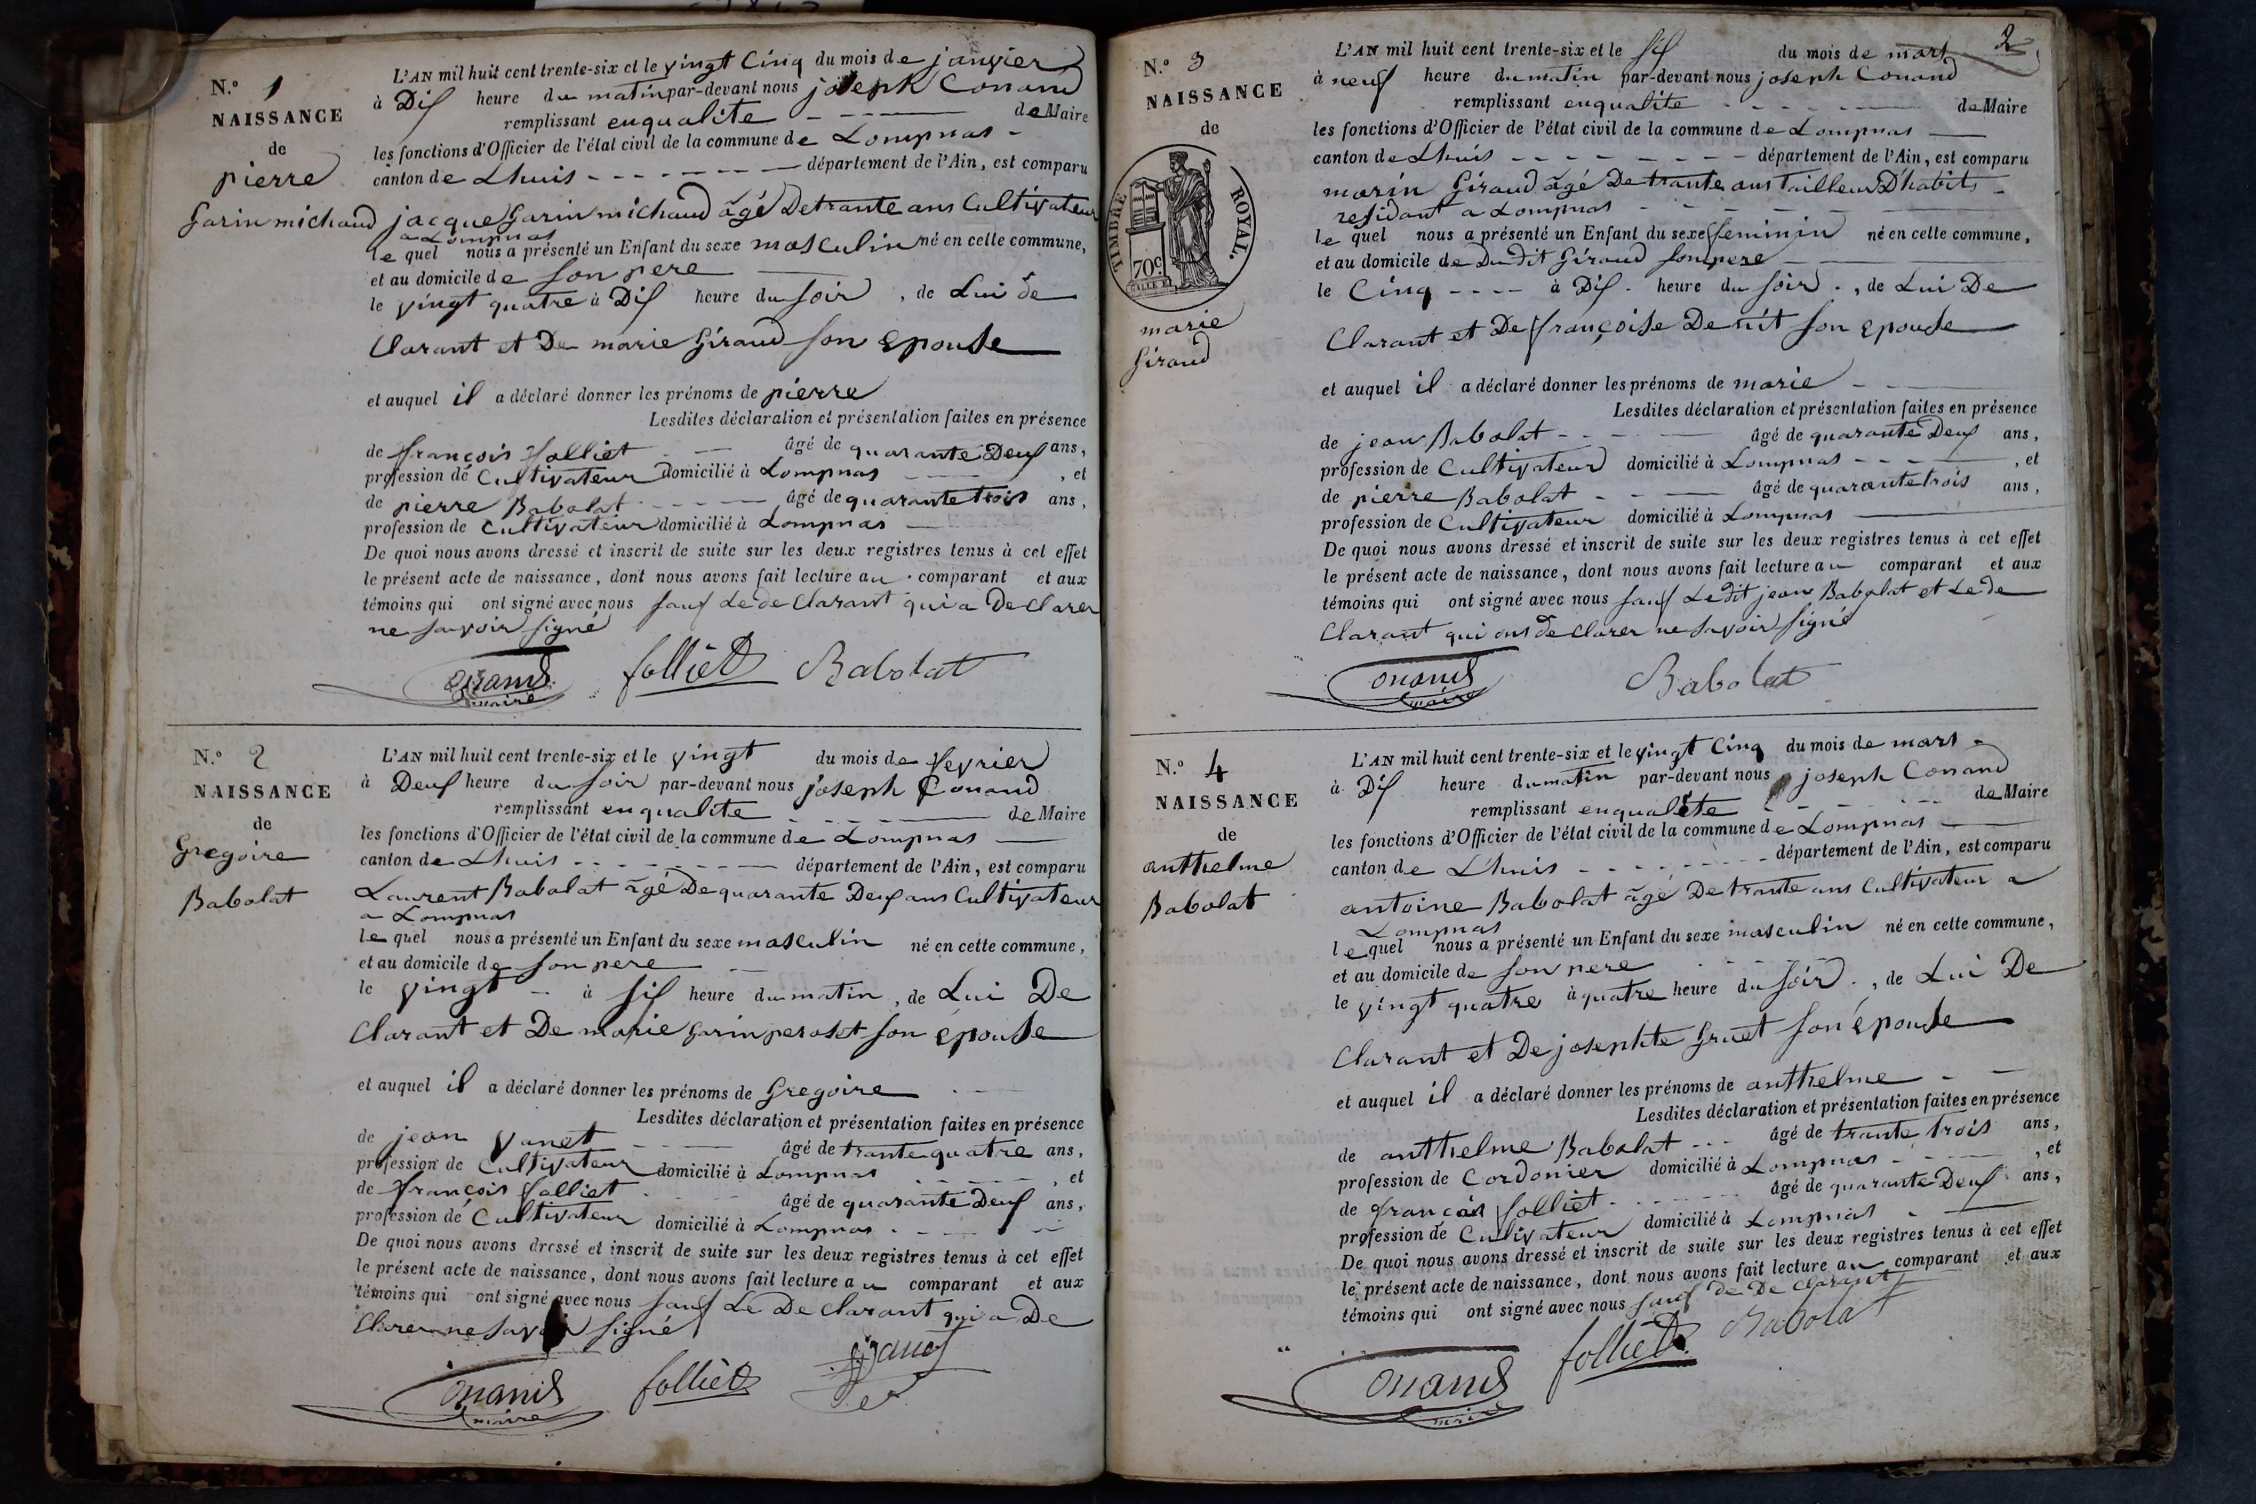 N.º 1
NAISSANCE
de
pierre
Garin michaud
L'AN mil huit cent trente-six et le vingt Cinq du mois de janvier
à Dix heure du matin par-devant nous joseph Conand
remplissant enqualite de Maire
les fonctions d'Officier de l'état civil de la commune de Lompnas
canton de Lhuis département de l'Ain, est comparu
jacque Garin michaud âgé De trante ans Cultivateur
a Lompnas
le quel nous a présenté un Enfant du sexe masculin né en cette commune,
et au domicile de son pere
le vingt quatre à Dix heure du soir, de Lui de
Clarant et De marie Giraud son Epouse
et auquel il a déclaré donner les prénoms de pierre
Lesdites déclaration et présentation faites en présence
de françois folliet âgé de quarante Deux ans,
profession de Cultivateur domicilié à Lompnas, et
de pierre Babolat âgé de quarante trois ans,
profession de Cultivateur domicilié à Lompnas
De quoi nous avons dressé et inscrit de suite sur les deux registres tenus à cet effet
le présent acte de naissance, dont nous avons fait lecture au comparant et aux
témoins qui ont signé avec nous sauf Le de Clarant qui a De Clarer
ne savoir signé
Conand maire folliet Babolat
N.º 2
NAISSANCE
de
Gregoire
Babolat
L'AN mil huit cent trente-six et le vingt du mois de fevrier
à Deux heure du soir par-devant nous joseph Conand
remplissant enqualite de Maire
les fonctions d'Officier de l'état civil de la commune de Lompnas
canton de Lhuis département de l'Ain, est comparu
Laurent Babolat âgé De quarante Deux ans Cultivateur
a Lompnas
le quel nous a présenté un Enfant du sexe masculin né en cette commune,
et au domicile de son pere
le vingt à six heure du matin, de Lui De
Clarant et De marie garin peroset son épouse
et auquel il a déclaré donner les prénoms de Gregoire
Lesdites déclaration et présentation faites en présence
de jean Vanet âgé de trante quatre ans,
profession de Cultivateur domicilié à Lompnas, et
de françois folliet âgé de quarante Deux ans,
profession de Cultivateur domicilié à Lompnas
De quoi nous avons dressé et inscrit de suite sur les deux registres tenus à cet effet
le présent acte de naissance, dont nous avons fait lecture au comparant et aux
témoins qui ont signé avec nous sauf Le De Clarant qui a De
Clarer ne savoir signé
Conand maire folliet
2
N.º 3
NAISSANCE
de
TIMBRE ROYAL.
70c
marie
Giraud
L'AN mil huit cent trente-six et le six du mois de mars
à neuf heure du matin par-devant nous joseph Conand
remplissant enqualite de Maire
les fonctions d'Officier de l'état civil de la commune de Lompnas
canton de Lhuis département de l'Ain, est comparu
marin Giraud âgé De trante ans Tailleur D'habits
residant a Lompnas
le quel nous a présenté un Enfant du sexe feminin né en cette commune,
et au domicile de Dudit Giraud son pere
le Cinq à Dix heure du soir, de Lui De
Clarant et De françoise son epouse
et auquel il a déclaré donner les prénoms de marie
Lesdites déclaration et présentation faites en présence
de jean Babolat âgé de quarante Deux ans,
profession de Cultivateur domicilié à Lompnas, et
de pierre Babolat âgé de quarante trois ans,
profession de Cultivateur domicilié à Lompnas
De quoi nous avons dressé et inscrit de suite sur les deux registres tenus à cet effet
le présent acte de naissance, dont nous avons fait lecture au comparant et aux
témoins qui ont signé avec nous sauf Ledit jean Babolat et Le de
Clarant qui ons de Clarer ne savoir signé
Conand maire Babolat
N.º 4
NAISSANCE
de
anthelme
Babolat
L'AN mil huit cent trente-six et le vingt Cinq du mois de mars
à Dix heure du matin par-devant nous joseph Conand
remplissant enqualite de Maire
les fonctions d'Officier de l'état civil de la commune de Lompnas
canton de Lhuis département de l'Ain, est comparu
antoine Babolat âgé De trante ans Cultivateur a
Lompnas
le quel nous a présenté un Enfant du sexe masculin né en cette commune,
et au domicile de son pere
le vingt quatre à quatre heure du soir, de Lui De
Clarant et De josephte Gruet son épouse
et auquel il a déclaré donner les prénoms de anthelme
Lesdites déclaration et présentation faites en présence
de anthelme Babolat âgé de trante trois ans,
profession de Cordonier domicilié à Lompnas, et
de françois folliet âgé de quarante Deux ans,
profession de Cultivateur domicilié à Lompnas
De quoi nous avons dressé et inscrit de suite sur les deux registres tenus à cet effet
le présent acte de naissance, dont nous avons fait lecture au comparant et aux
témoins qui ont signé avec nous sauf De De Clarant
Conand maire folliet Babolat